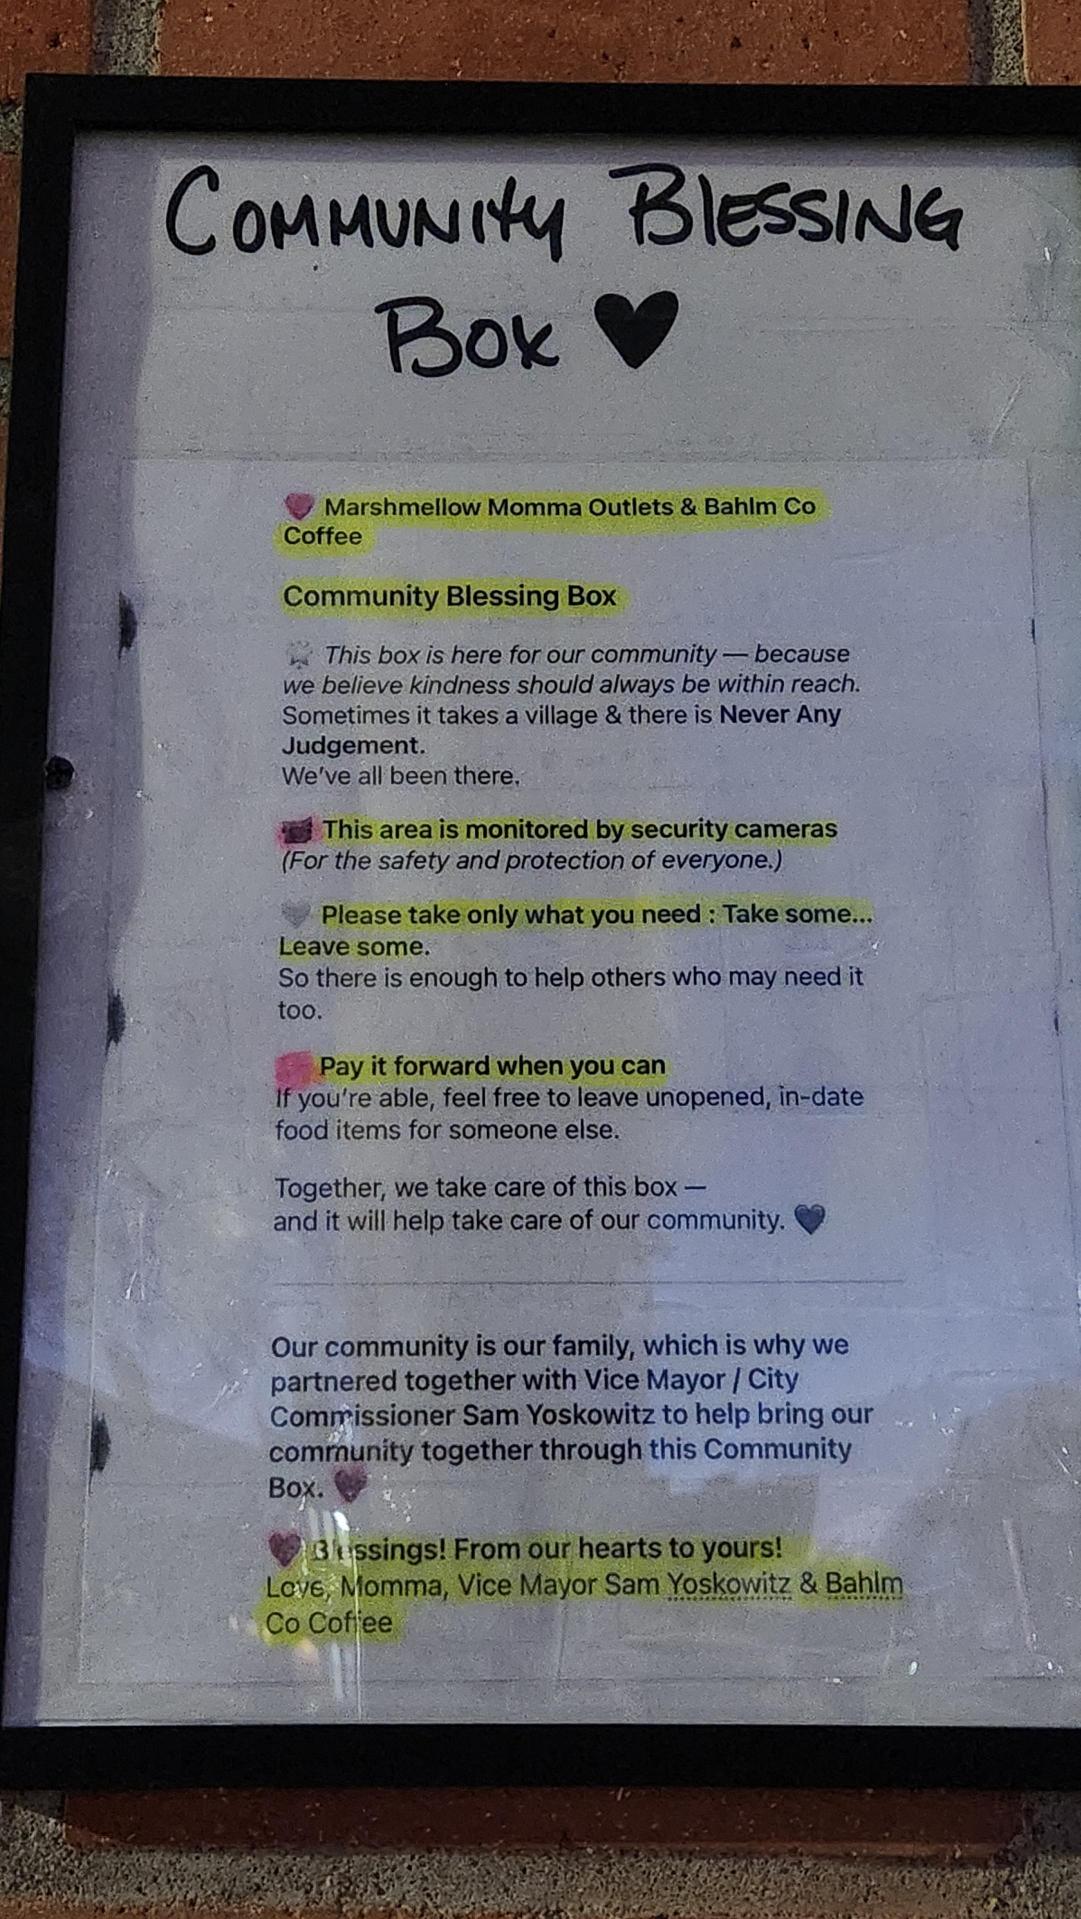 COMMUNITY BLESSING
BOX ♥
Marshmellow Momma Outlets & Bahlm Co
Coffee
Community Blessing Box
This box is here for our community — because
we believe kindness should always be within reach.
Sometimes it takes a village & there is Never Any
Judgement.
We've all been there.
This area is monitored by security cameras
(For the safety and protection of everyone.)
Please take only what you need : Take some...
Leave some.
So there is enough to help others who may need it
too.
Pay it forward when you can
If you're able, feel free to leave unopened, in-date
food items for someone else.
Together, we take care of this box —
and it will help take care of our community. 🖤
Our community is our family, which is why we
partnered together with Vice Mayor / City
Commissioner Sam Yoskowitz to help bring our
community together through this Community
Box.
Blessings! From our hearts to yours!
Love, Momma, Vice Mayor Sam Yoskowitz & Bahlm
Co Coffee